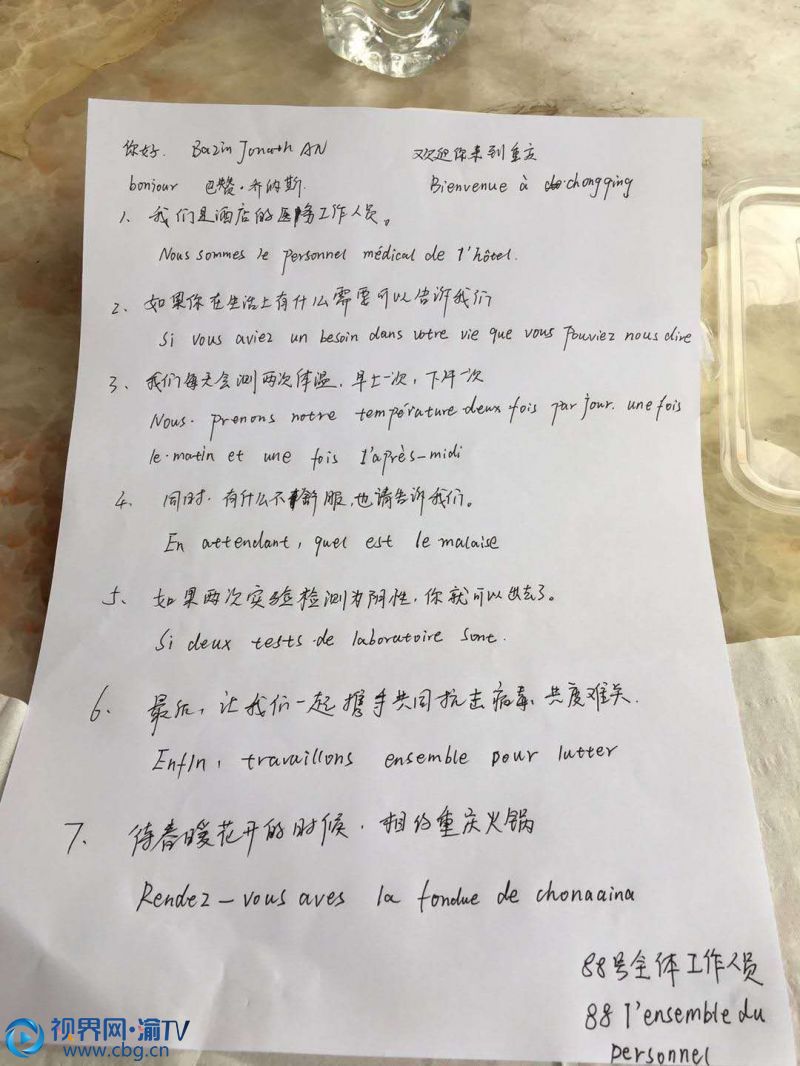 你好. Bazin Jonath AN 欢迎你来到重庆
bonjour 巴赞·乔纳斯. Bienvenue à chongqing
1、我们是酒店的医务工作人员。
Nous sommes le personnel médical de l'hôtel.
2、如果你在生活上有什么需要可以告诉我们
Si vous aviez un besoin dans votre vie que vous pouviez nous dire
3、我们每天会测两次体温,早上一次,下午一次
Nous. prenons notre température deux fois par jour. une fois
le matin et une fois l'après-midi
4、同时.有什么不舒服,也请告诉我们。
En attendant, quel est le malaise
5、如果两次实验检测为阴性,你就可以出去了。
Si deux tests de laboratoire sont.
6、最后,让我们一起携手共同抗击病毒,共度难关.
Enfin, travaillons ensemble pour lutter
7、待春暖花开的时候,相约重庆火锅
Rendez-vous aves la fondue de chonaaina
88号全体工作人员
88 l'ensemble du
personnel
视界网·渝TV
www.cbg.cn